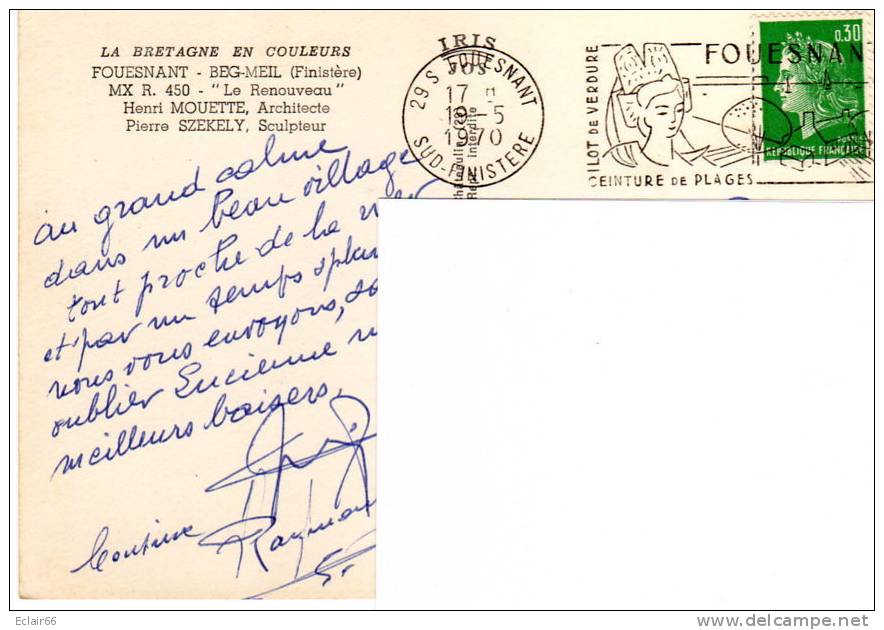 LA BRETAGNE EN COULEURS
FOUESNANT - BEG-MEIL (Finistère)
MX R. 450 - "Le Renouveau"
Henri MOUETTE, Architecte
Pierre SZEKELY, Sculpteur
IRIS
JOS
29 S FOUESNANT
17 H
19-5
1970
SUD-FINISTERE
interdite
FOUESNAN
ILOT DE VERDURE
CEINTURE DE PLAGES
0,30
POSTES
REPUBLIQUE FRANÇAISE
au grand calme
dans un beau village
tout proche de la mer
et par un temps splen
nous vous envoyons, sa
oublier Lucienne
meilleurs baisers.
Eclair66
www.delcampe.net